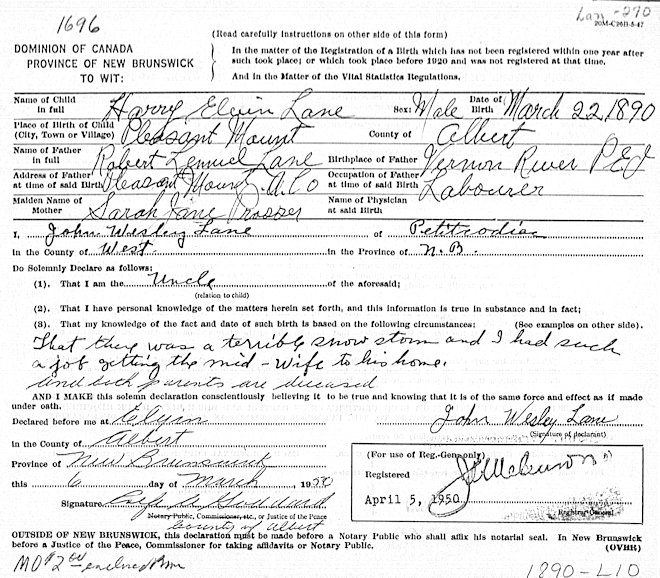 1696
Lan-290
20M-C26B-5-47
(Read carefully instructions on other side of this form)
DOMINION OF CANADA
PROVINCE OF NEW BRUNSWICK
TO WIT:
In the matter of the Registration of a Birth which has not been registered within one year after
such took place; or which took place before 1920 and was not registered at that time.
And in the Matter of the Vital Statistics Regulations.
Name of Child in full Harry Elvin Lane Sex: Male Date of Birth March 22, 1890
Place of Birth of Child (City, Town or Village) Pleasant Mount County of Albert
Name of Father in full Robert Lemuel Lane Birthplace of Father Vernon River P E I
Address of Father at time of said Birth Pleasant Mount A. Co Occupation of Father at time of said Birth Labourer
Maiden Name of Mother Sarah Jane Prosser Name of Physician at said Birth
I, John Wesley Lane of Petitcodiac
in the County of West. in the Province of N.B.
Do Solemnly Declare as follows:
(1). That I am the Uncle of the aforesaid;
(relation to child)
(2). That I have personal knowledge of the matters herein set forth, and this information is true in substance and in fact;
(3). That my knowledge of the fact and date of such birth is based on the following circumstances: (See examples on other side).
That there was a terrible snow storm and I had such
a job getting the mid-wife to his home.
and both parents are deceased
AND I MAKE this solemn declaration conscientiously believing it to be true and knowing that it is of the same force and effect as if made
under oath.
Declared before me at Elgin
John Wesley Lane
(Signature of declarant)
in the County of Albert
Province of New Brunswick
this 6 day of March, 1950
Signature
Notary Public, Commissioner, etc., or Justice of the Peace
County of Albert
(For use of Reg.-Gen. only)
Registered
April 5, 1950
Registrar General
OUTSIDE OF NEW BRUNSWICK, this declaration must be made before a Notary Public who shall affix his notarial seal. In New Brunswick
before a Justice of the Peace, Commissioner for taking affidavits or Notary Public.
(OVER)
MO $2 00 enclosed
1890-L-10